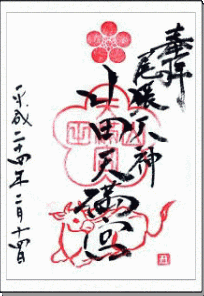 奉拝
尾張天神
山田天満宮
平成二十四年二月十四日